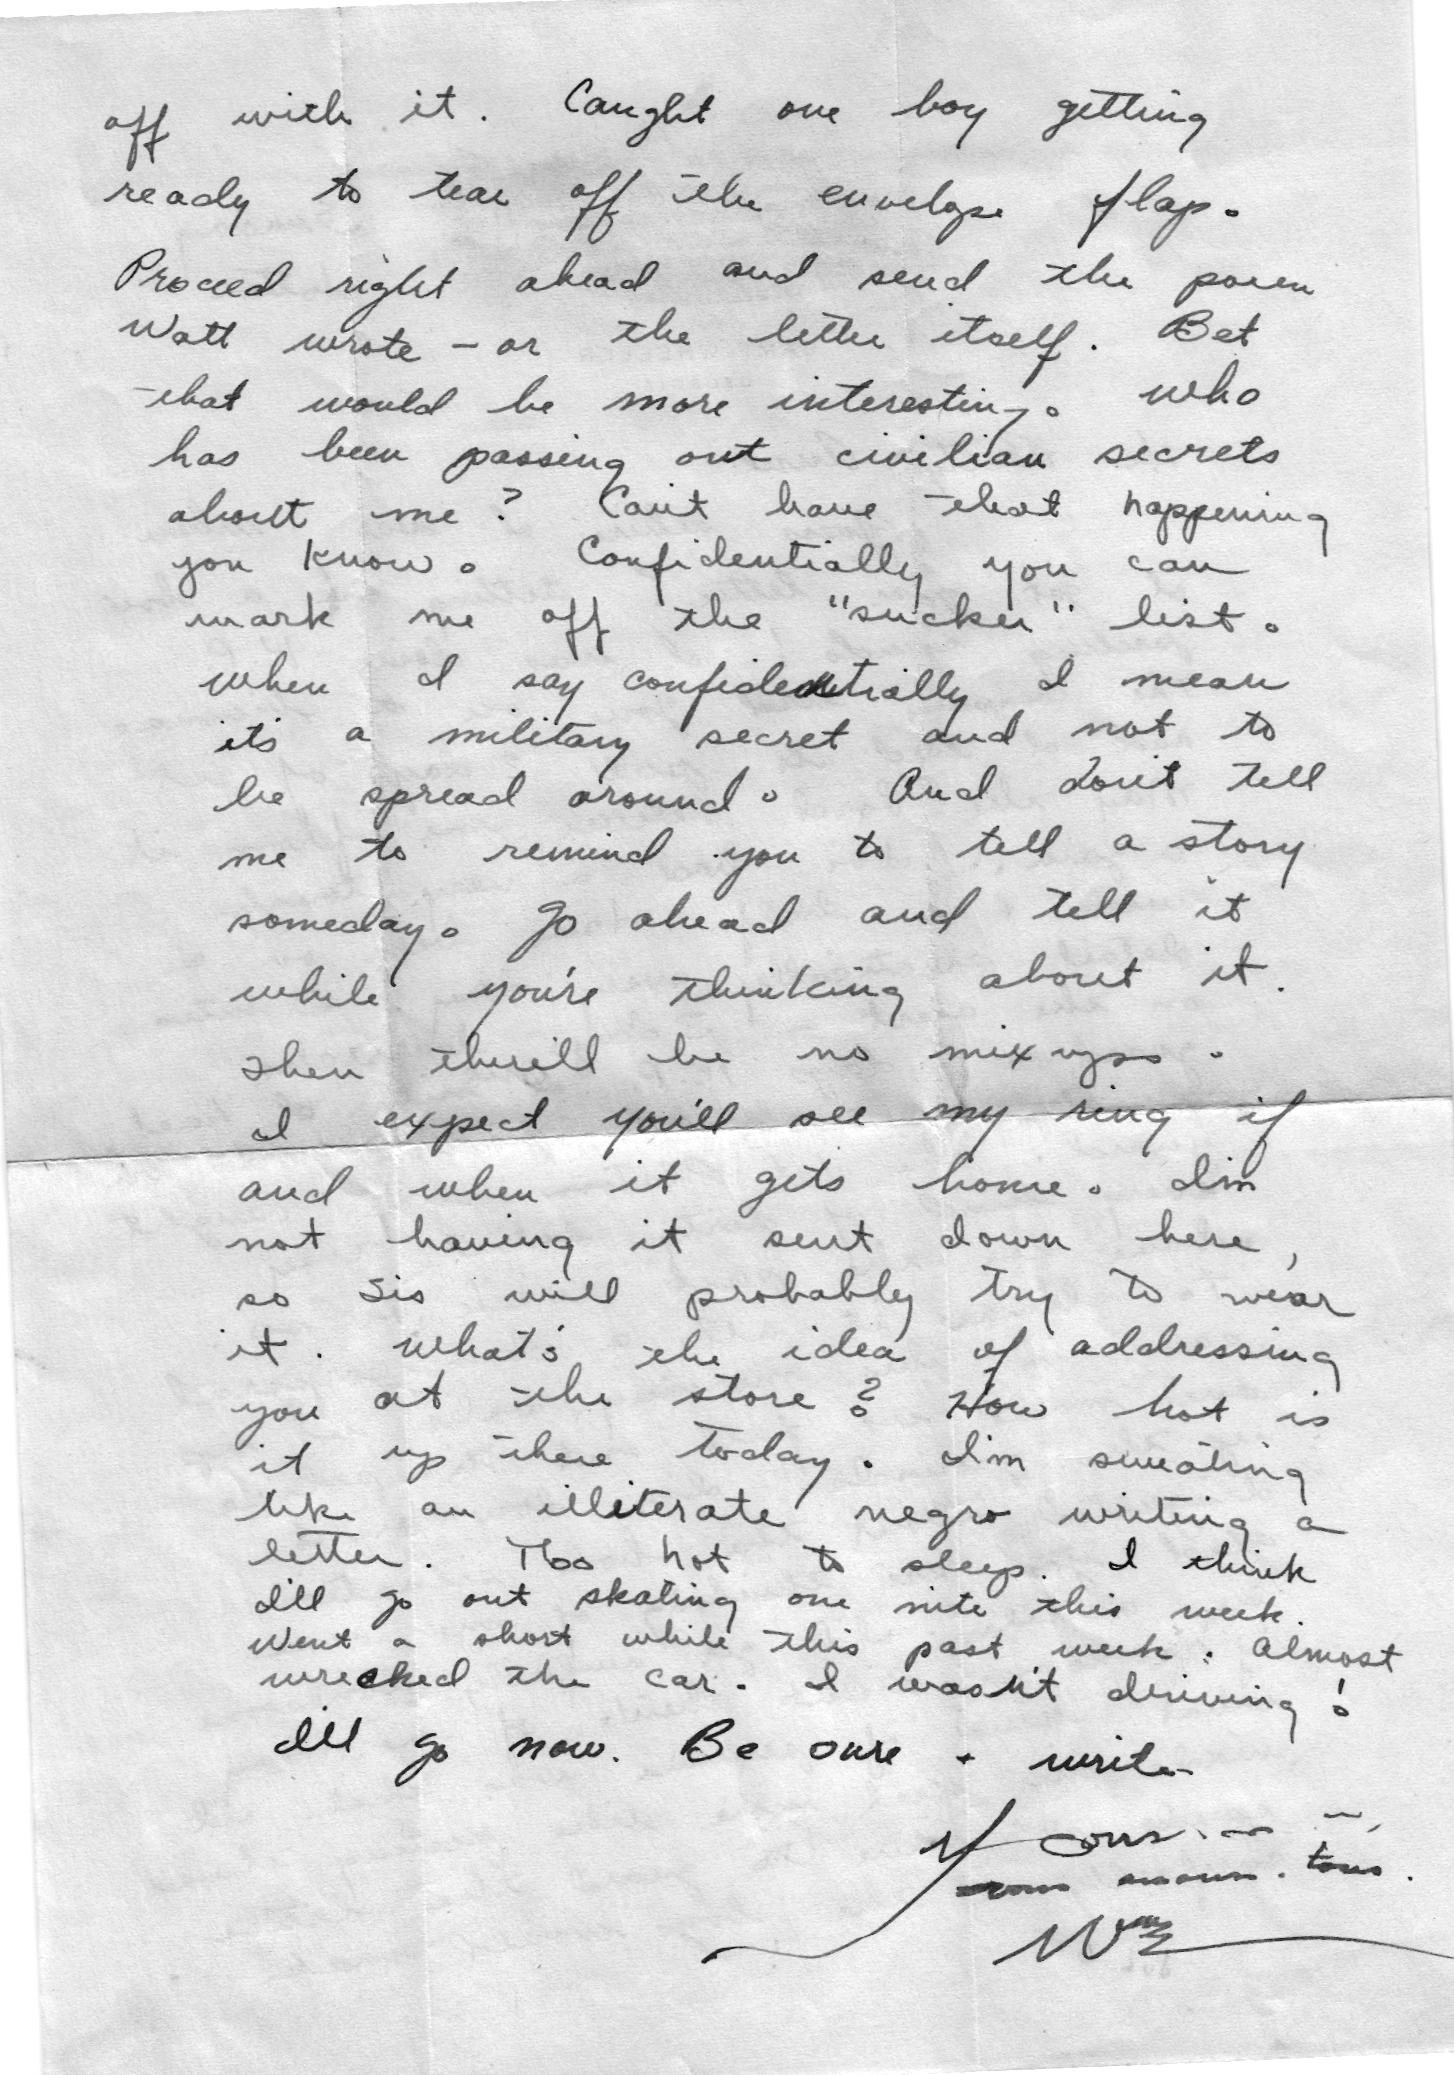 off with it. Caught one boy getting
ready to tear off the envelope flap.
Proceed right ahead and send the poem
Watt wrote - or the letter itself. Bet
that would be more interesting. Who
has been passing out civilian secrets
about me? Can't have that happening
you know. Confidentially you can
mark me off the "sucker" list.
When I say confidentially I mean
it's a military secret and not to
be spread around. And don't tell
me to remind you to tell a story
someday. Go ahead and tell it
while you're thinking about it.
Then there'll be no mixups.
I expect you'll see my ring if
and when it gets home. I'm
not having it sent down here,
so Sis will probably try to wear
it. What's the idea of addressing
you at the store? How hot is
it up there today. I'm sweating
like an illiterate negro writing a
letter. Too hot to sleep. I think
I'll go out skating one nite this week.
Went a short while this past week. Almost
wrecked the car. I wasn't driving!
I'll go now. Be sure + write
Yours
Wm